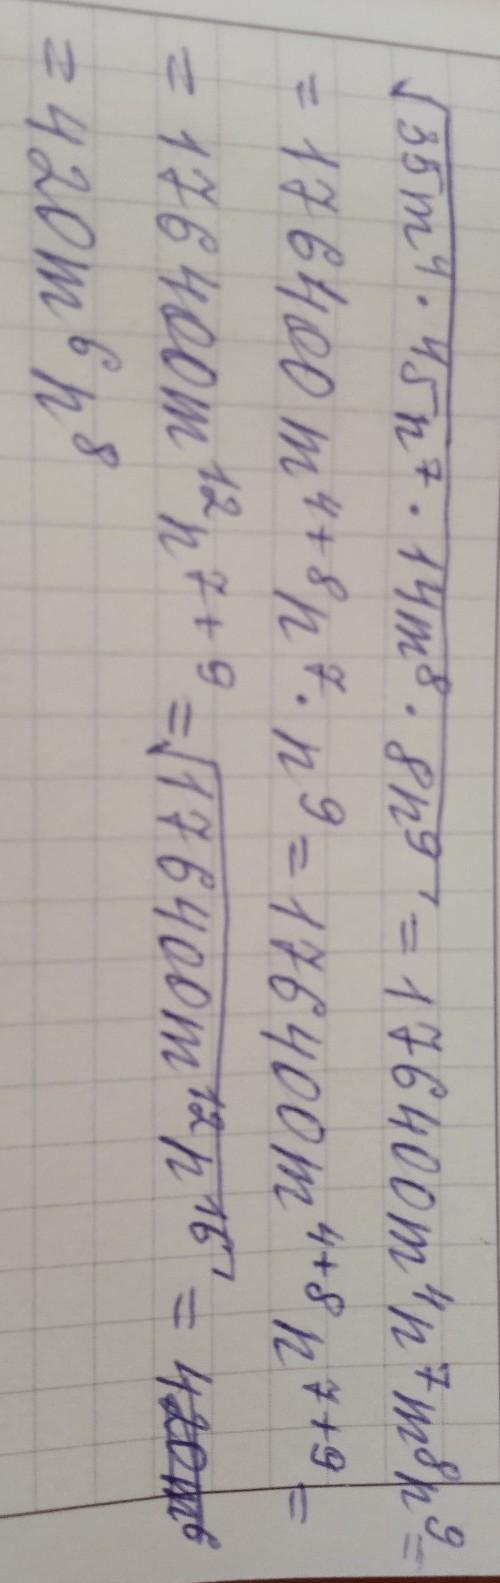 √35m⁴ · 45n⁷ · 14m⁸ · 8n⁹ = 176400m⁴n⁷m⁸n⁹ =
= 176400 m⁴⁺⁸ n⁷ · n⁹ = 176400m⁴⁺⁸ n⁷⁺⁹ =
= 176400m¹² n⁷⁺⁹ = √176400m¹² n¹⁶ = 420m⁶
= 420m⁶ n⁸